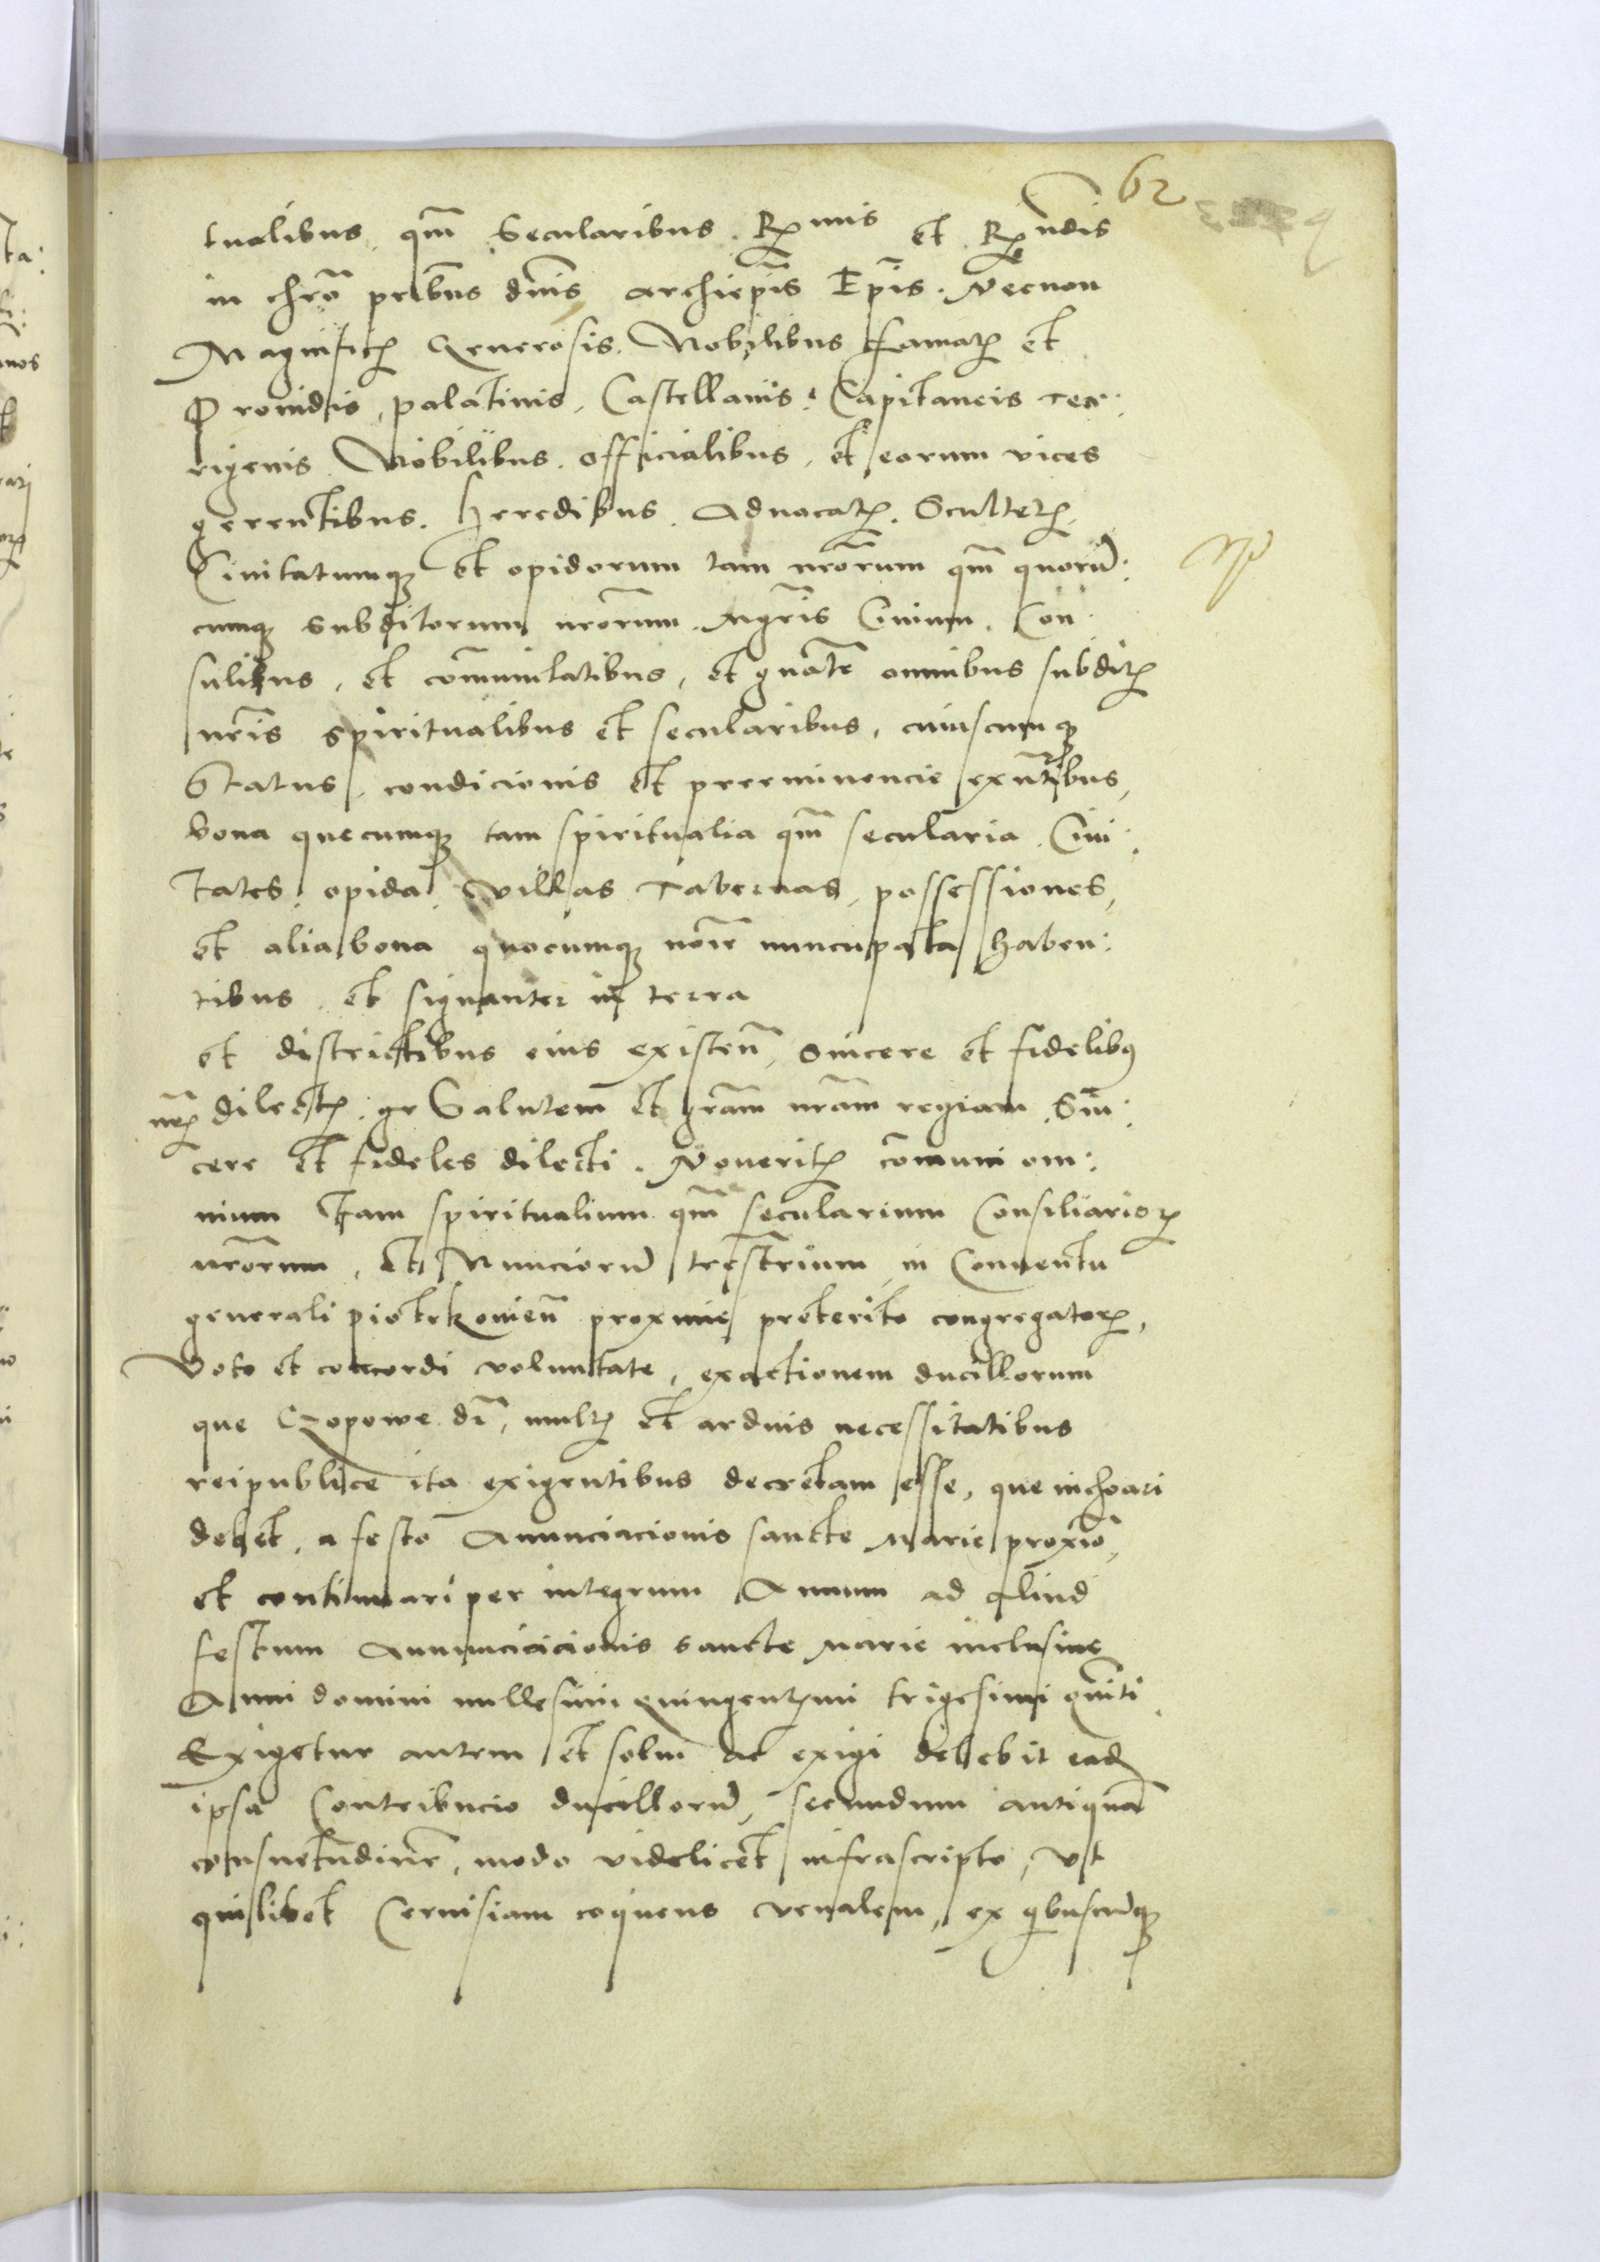 62
tualibus qm̃ Secularibus. Rmis et Rndis
in chrõ pribus dñis archiepis Epis. Necnon
Magnificis Generosis. Nobilibus Famatis et
Providis, palatinis, Castellanis, Capitaneis ter:
rigenis Nobilibus. officialibus, et eorum vices
gerentibus. heredibus. Advocatis. Scultetis.
Civitatumque et opidorum tam nrõrum qm̃ quorũ:
cumque subditorum nrõrum. Mgris Civium. Con:
sulibus, et com̃unitatibus, et gnãte omnibus subditis
nris spiritualibus et secularibus, cuiuscumque
Status, condicionis et preeminencie exñtibus,
bona quecumque tam spiritualia qm̃ secularia. Civi:
tates, opida, villas tabernas, possessiones,
et alia bona quocumque noĩe nuncupata haben:
tibus et signanter in terra
et districtibus eius existeñ, Sincere et fidelibus
nris dilectis gr Salutem et grãm nrãm regiam. Sin:
cere et fideles dilecti. Noveritis com̃uni om:
nium tam spiritualium qm̃ secularium Consiliariorum
nrõrum, et Nunciorũ trestrium, in Conventu
generali piotrkovieñ proxime preterito congregatorum,
Voto et concordi voluntate, exactionem ducillorum
que Czopowe dr̃, multis et arduis necessitatibus
reipublice ita exigentibus decretam esse, que inchoari
debet, a festo Anunciacionis sancte Marie proximo,
et continuari per integrum Annum ad aliud
festum Anunciacionis sancte Marie inclusive
Anni domini millesimi quingentesimi trigesimi quinti.
Exigetur autem et solui ac exigi debebit ead
ipsa Contribucio ducillorũ, secundum antiquam
consuetudinẽ, modo videlicet infrascripto, Vt
quilibet Cervisiam coquens venalem, ex quibuscũque